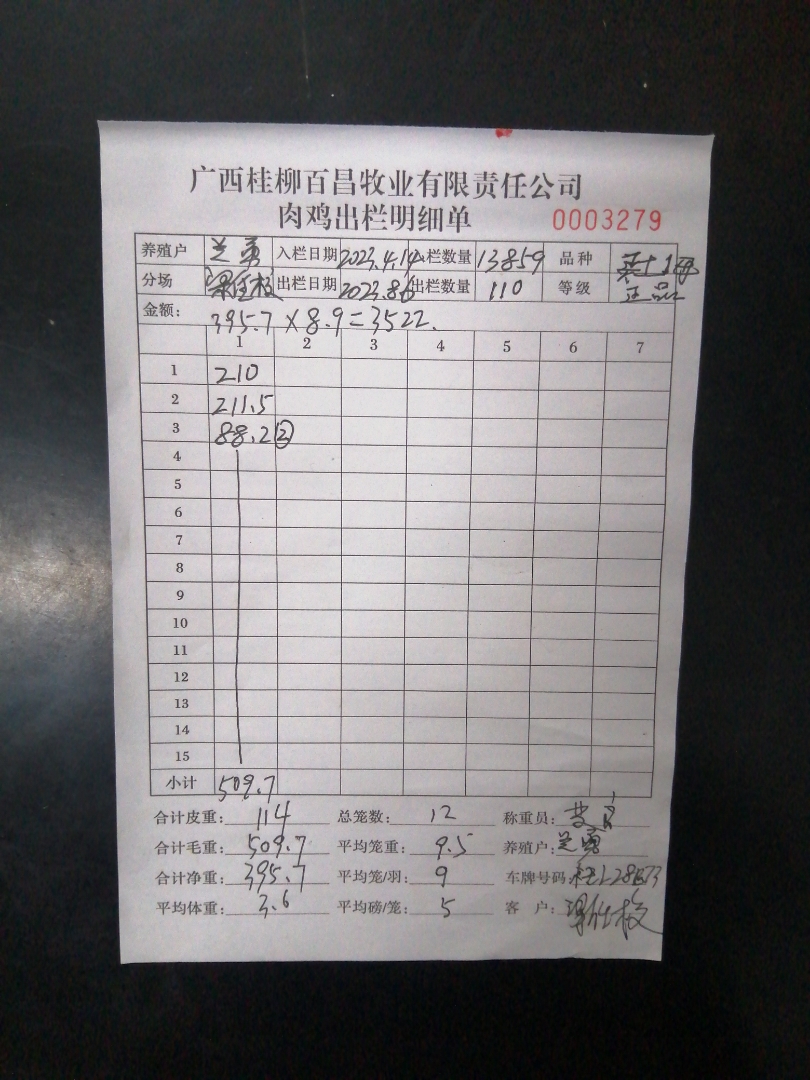 广西桂柳百昌牧业有限责任公司
肉鸡出栏明细单 0003279
养殖户 兰勇 入栏日期 2023.4.14 入栏数量 13859 品种
分场 出栏日期 2023.8.6 出栏数量 110 等级 正品
金额: 395.7×8.9=3522.
1 2 3 4 5 6 7
1 210
2 211.5
3 88.2②
4
5
6
7
8
9
10
11
12
13
14
15
小计 509.7
合计皮重: 114 总笼数: 12 称重员:
合计毛重: 509.7 平均笼重: 9.5 养殖户: 兰勇
合计净重: 395.7 平均笼/羽: 9 车牌号码:
平均体重: 3.6 平均磅/笼: 5 客户: